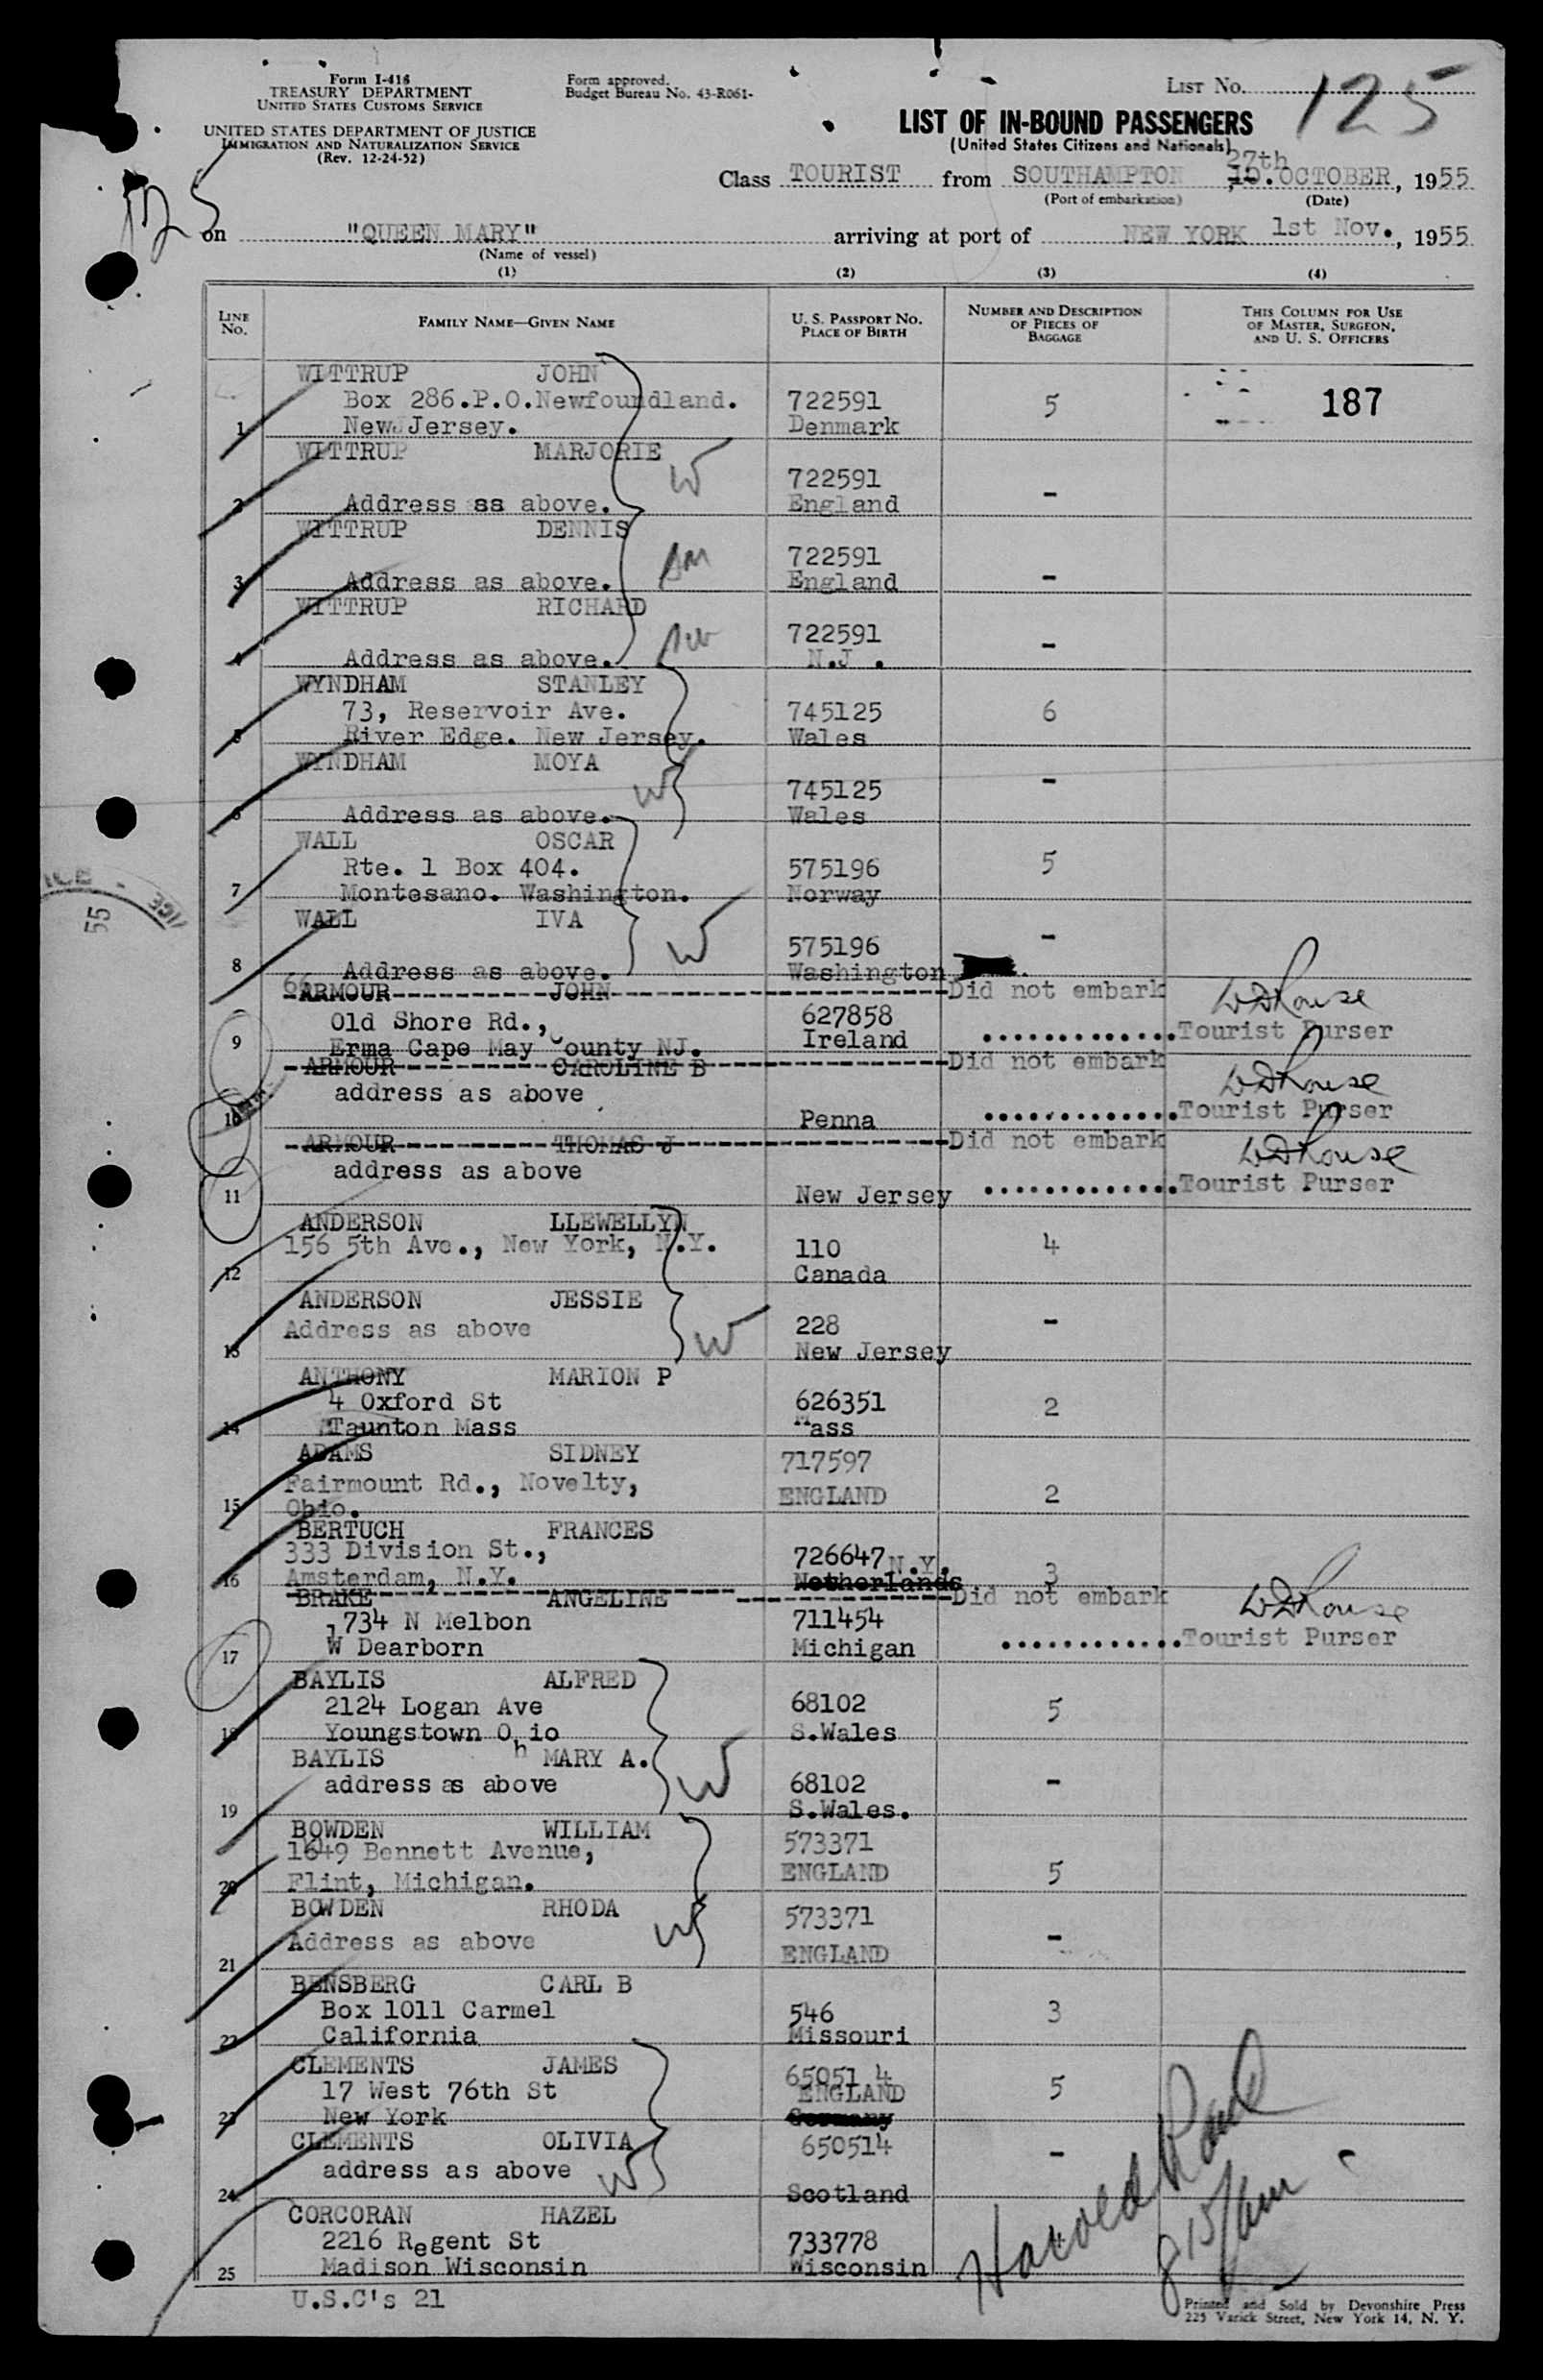 Form I-416
TREASURY DEPARTMENT
UNITED STATES CUSTOMS SERVICE
UNITED STATES DEPARTMENT OF JUSTICE
IMMIGRATION AND NATURALIZATION SERVICE
(Rev. 12-24-52)
Form approved.
Budget Bureau No. 43-R061-
LIST NO. 125
LIST OF IN-BOUND PASSENGERS
(United States Citizens and Nationals)
125
27th
Class TOURIST from SOUTHAMPTON, 10. OCTOBER, 1955
(Port of embarkation) (Date)
on "QUEEN MARY" arriving at port of NEW YORK 1st Nov., 1955
(Name of vessel)
(1) (2) (3) (4)
LINE NO. FAMILY NAME—GIVEN NAME U. S. PASSPORT NO. PLACE OF BIRTH NUMBER AND DESCRIPTION OF PIECES OF BAGGAGE THIS COLUMN FOR USE OF MASTER, SURGEON, AND U. S. OFFICERS
WITTRUP JOHN
Box 286.P.O.Newfoundland. 722591 5 187
1 New Jersey. Denmark
WITTRUP MARJORIE
W 722591 -
2 Address as above. England
WITTRUP DENNIS
722591 -
3 Address as above. England
WITTRUP RICHARD
722591 -
4 Address as above. N.J .
WYNDHAM STANLEY
73, Reservoir Ave. 745125 6
5 River Edge. New Jersey. Wales
WYNDHAM MOYA
W 745125 -
6 Address as above. Wales
WALL OSCAR
Rte. 1 Box 404. 575196 5
7 Montesano. Washington. Norway
WALL IVA
W 575196 -
8 Address as above. Washington
ARMOUR JOHN Did not embark
Old Shore Rd., 627858
9 Erma Cape May County NJ. Ireland Tourist Purser
ARMOUR CAROLINE B Did not embark
address as above
10 Penna Tourist Purser
ARMOUR THOMAS J Did not embark
address as above
11 New Jersey Tourist Purser
ANDERSON LLEWELLYN
156 5th Ave., New York, N.Y. 110 4
12 Canada
ANDERSON JESSIE
Address as above 228 -
13 W New Jersey
ANTHONY MARION P
4 Oxford St 626351 2
14 Taunton Mass Mass
ADAMS SIDNEY 717597
Fairmount Rd., Novelty, ENGLAND 2
15 Ohio.
BERTUCH FRANCES
333 Division St., 726647 N.Y. 3
16 Amsterdam, N.Y. Netherlands
BRAKE ANGELINE Did not embark
1734 N Melbon 711454
17 W Dearborn Michigan Tourist Purser
BAYLIS ALFRED
2124 Logan Ave 68102 5
18 Youngstown Ohio S.Wales
BAYLIS MARY A.
address as above W 68102 -
19 S.Wales.
BOWDEN WILLIAM
1649 Bennett Avenue, 573371
20 Flint, Michigan. ENGLAND 5
BOWDEN RHODA 573371
Address as above W -
21 ENGLAND
BENSBERG CARL B
Box 1011 Carmel 546 3
22 California Missouri
CLEMENTS JAMES 65051 4
17 West 76th St ENGLAND 5
23 New York Germany
CLEMENTS OLIVIA 650514
address as above W -
24 Scotland
CORCORAN HAZEL
2216 Regent St 733778
25 Madison Wisconsin Wisconsin
U.S.C's 21
Printed and Sold by Devonshire Press
225 Varick Street, New York 14, N. Y.